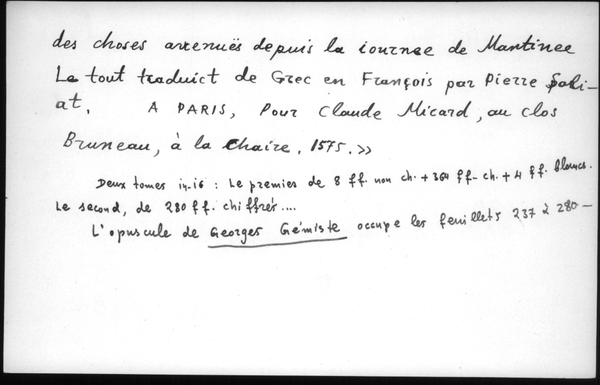 des choses avenuës depuis la iournee de Mantinee
Le tout traduict de Grec en François par Pierre Sali-
at. A PARIS, Pour Claude Micard, au clos
Bruneau, à la Chaire. 1575. >>
Deux tomes in-16 : Le premier de 8 ff. non ch. + 364 ff. ch. + 4 ff. blancs.
Le second, de 280 ff. chiffrés....
L'opuscule de Georges Gémiste occupe les feuillets 237 à 280 —